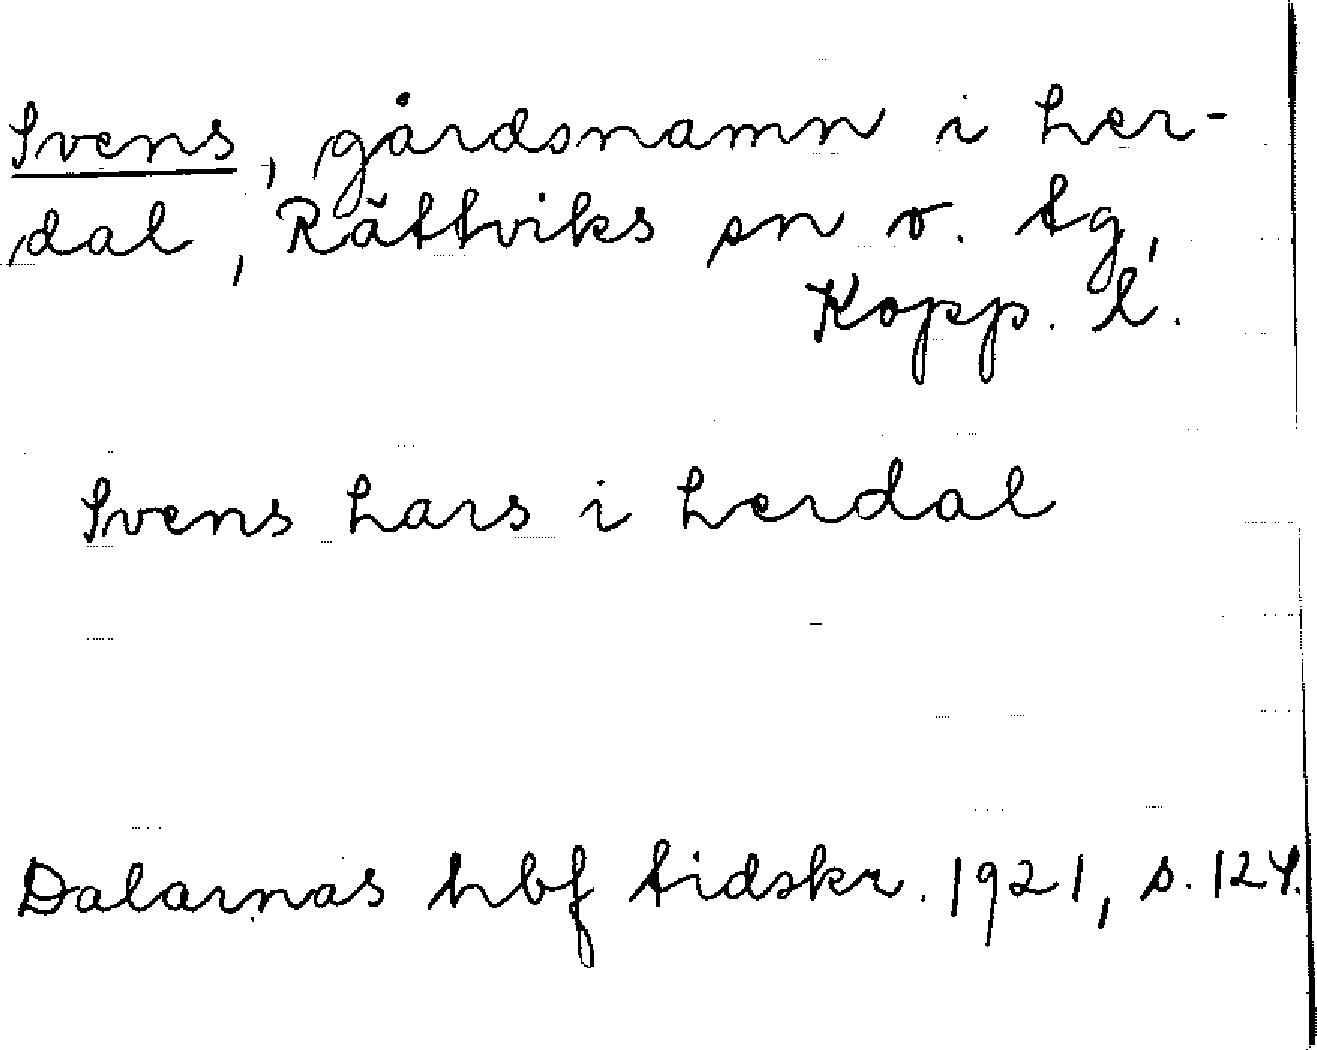 Svens, gårdsnamn i Ler-
dal, Rättviks sn o. tg,
Kopp. l.
Svens Lars i Lerdal
Dalarnas hbf tidskr. 1921, s. 124.